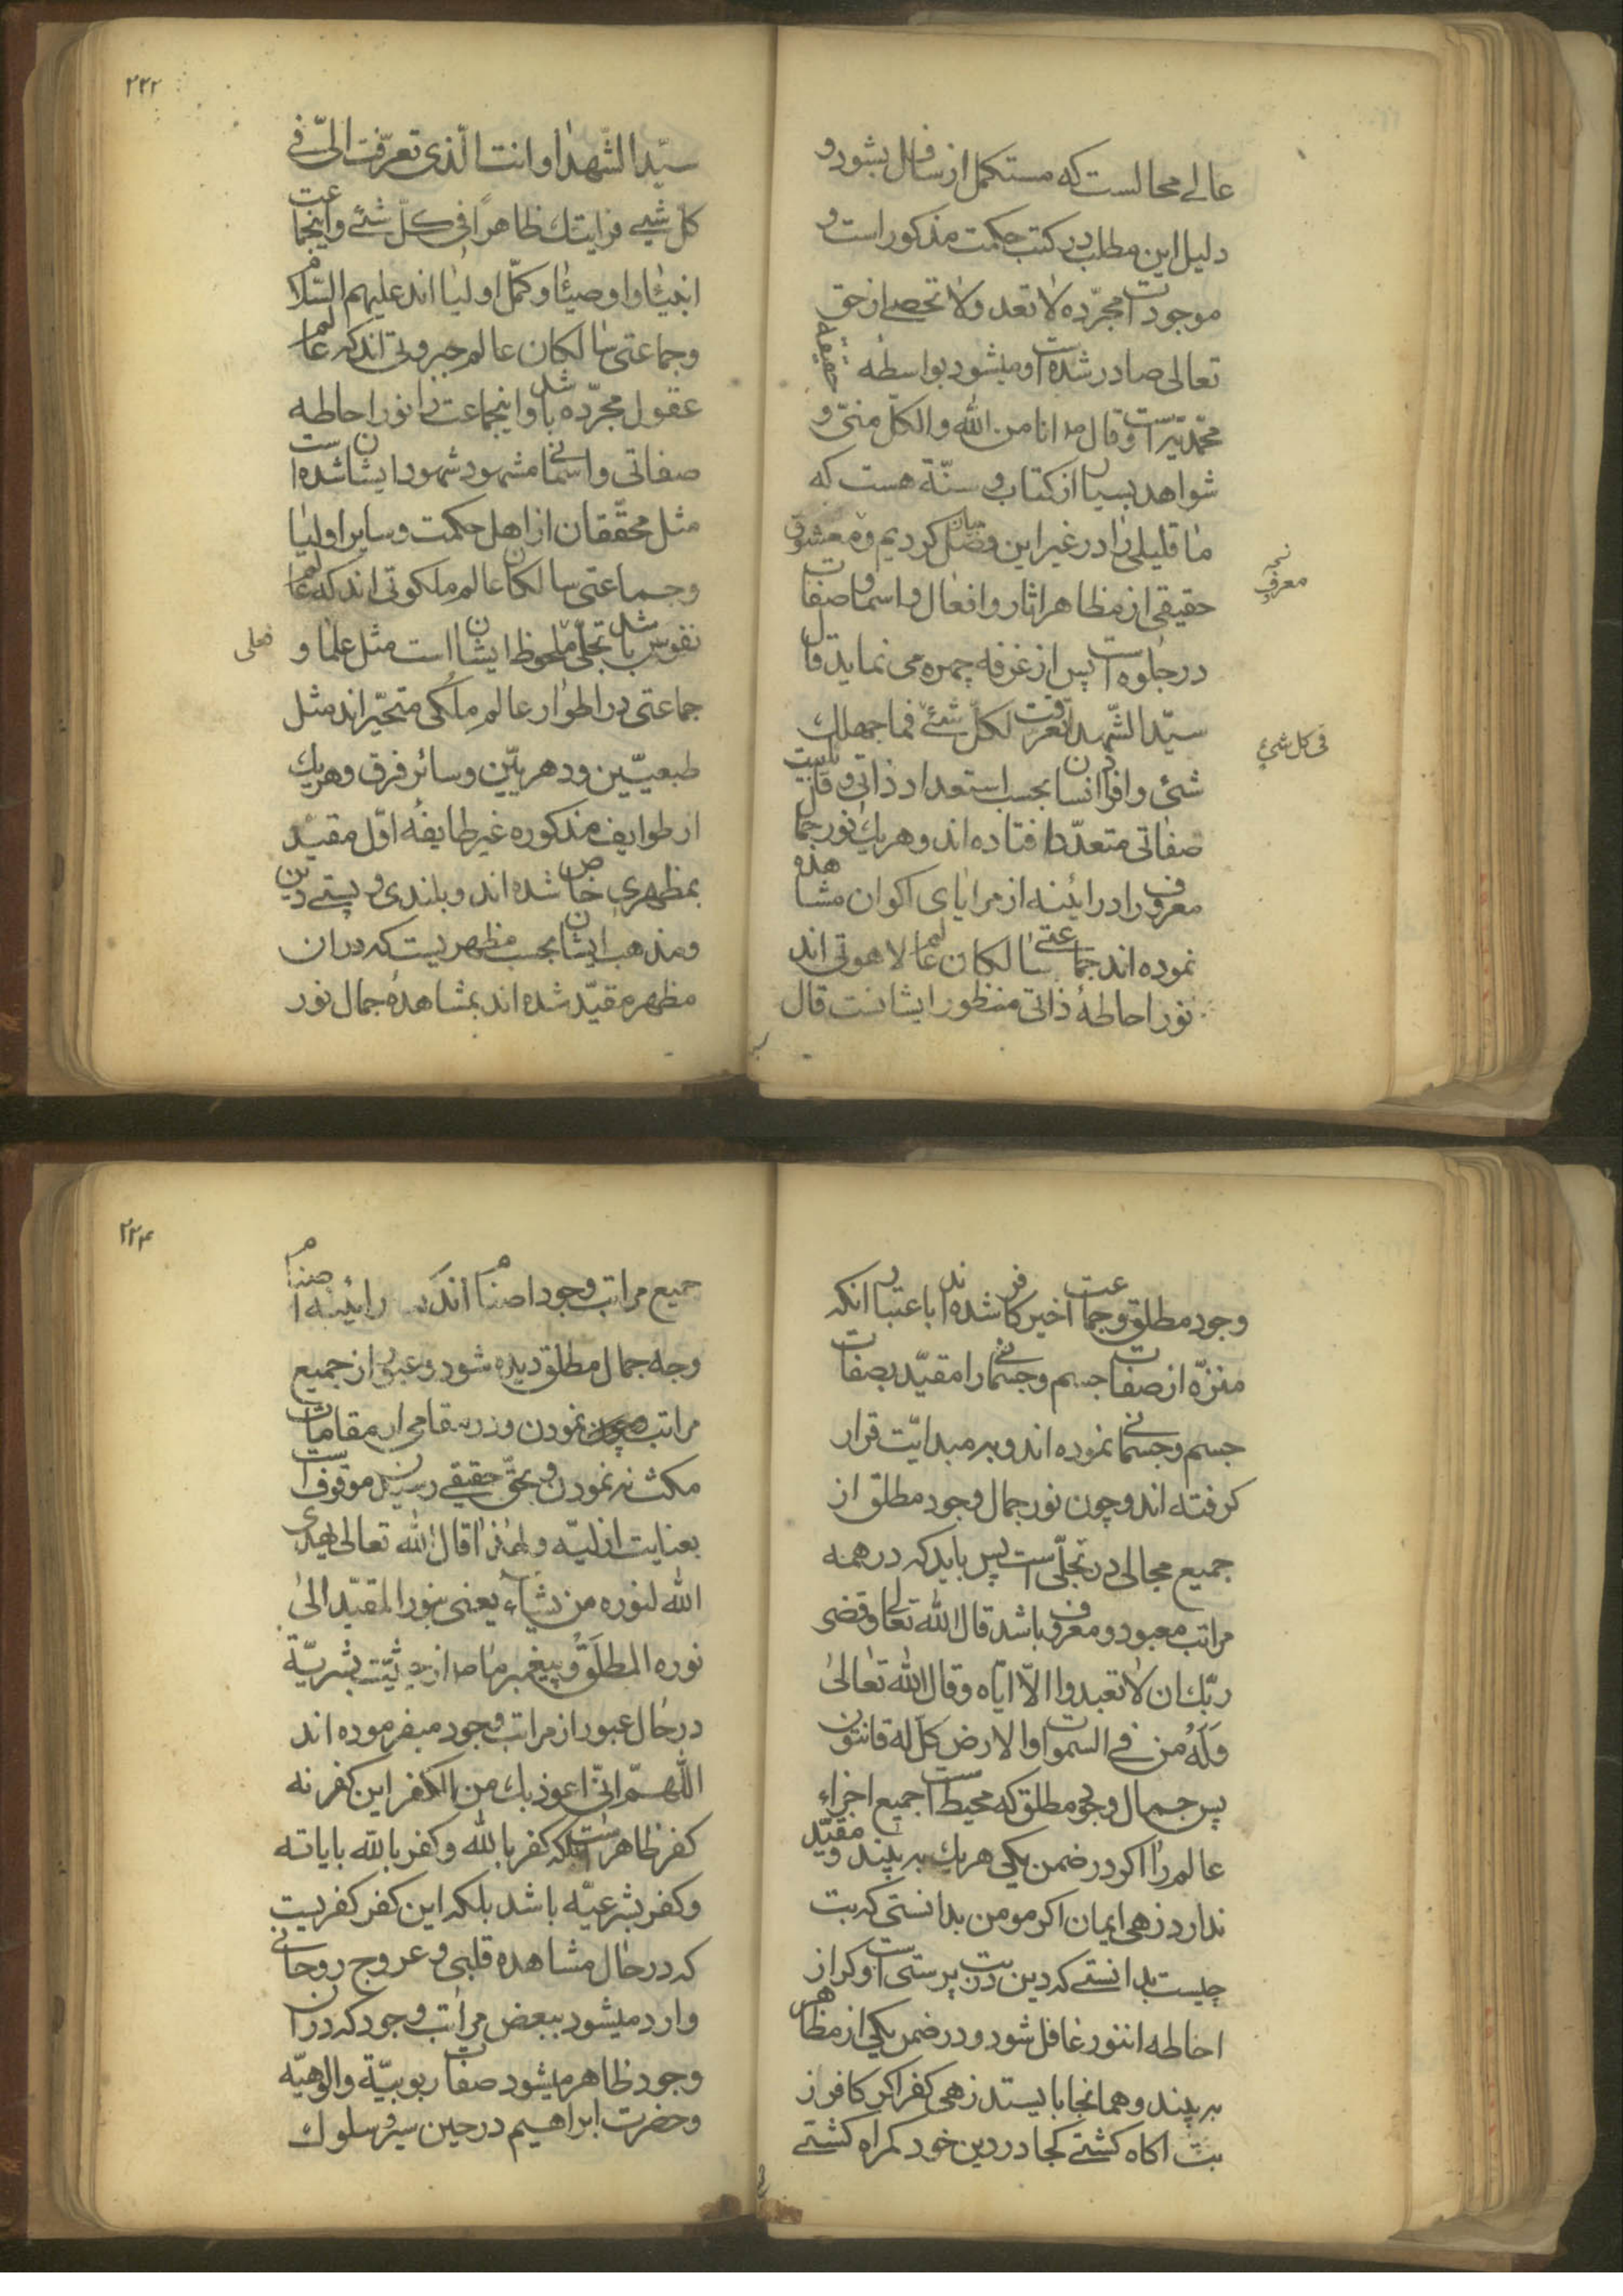 عالی محالست که مستکمل از سافل بشود و
دلیل این مطلب در کتب حکمت مذکور است و
موجودات مجرّده لا تعد ولا تحصی از حق
تعالی صادر شده است و میشود بواسطه حقیقة
محمّدیّه است و قال ص انا من اللّه والکلّ منّی و
شواهد بسیار از کتاب و سنّة هست که
ما قلیلی را در غیر این کردیم و معشوق
حقیقی از مظاهر اثار و افعال و اسما و صفات
در جلوه است پس از غرفه چهره می نماید قال
سیّد الشّهدا تعرفت لکلّ شئ فما جهلك
شئ و افراد انسان بحسب استعداد ذاتی و قابلیت
صفاتی متعدّد افتاده اند و هریك نور جمال
معروف را در ائینه از مرایای اکوان مشاهده
نموده اند جماعتی سالکان عالم لاهوتی اند
نور احاطهٔ ذاتی منظور ایشانست قال
نخ معرف
فی کل شئ
۲۲۲
سیّد الشّهدا و انت الّذی تعرّفت الیّ فی
کلّ شئ فرایتك ظاهرًا فی کلّ شئ و اینجماعت
انبیا و اوصیا و کمّل اولیا اند علیهم السّلام
وجماعتی سالکان عالم جبروتی اند که عالم
عقول مجرّده باشد و اینجماعت را نور احاطه
صفاتی و اسمائی مشهود شهود ایشان شده است
مثل محقّقان از اهل حکمت و سایر اولیا
وجماعتی سالکان عالم ملکوتی اند که عالم
نفوس باشد تجلّی ملحوظ ایشان است مثل علما و
فعلی
جماعتی در اطوار عالم ملکی متحیّر اند مثل
طبعییّن و دهرییّن و سائر فرق و هریك
از طوایف مذکوره غیر طایفهٔ اوّل مقیّد
بمظهری خاص شده اند و بلندی و پستی دین
و مذهب ایشان بحسب مظهریست که در ان
مظهر مقیّد شده اند بمشاهدهٔ جمال نور
وجود مطلق و جماعت اخیر کافر شده اند باعتبار انکه
منزّه از صفات جسم و جسمانی را مقیّد بصفات
جسم و جسمانی نموده اند و بر مبدائیّت قرار
کرفته اند و چون نور جمال وجود مطلق از
جمیع مجالی در تجلّی است پس باید که در همه
مراتب معبود و معروف باشد قال اللّه تعالی و قضی
ربّك ان لا تعبدوا الّا ایّاه و قال اللّه تعالیٰ
وَلَهُ من فی السموات والارض کلّ له قانتون
پس جمال وجود مطلق که محیط است جمیع اجزاء
عالم را اکر در ضمن یکی هریك به بیند و مقیّد
ندارد زهی ایمان اکر مومن بدانستی که بت
چیست بدانستی که دین در بت پرستی است و کر از
احاطه اننور غافل شود و در ضمن یکی از مظاهر
به بیند و همانجا بایستد زهی کفر اکر کافر ز
بت اکاه کشتی کجا در دین خود کمراه کشتی
۲۲۴
جمیع مراتب وجود اصنام اند که در ائینه اصنام
وجه جمال مطلق دیده شود و عبور از جمیع
مراتب نمودن و در مقامی از مقامات
مکث نه نمودن و بحقّ حقیقی رسیدن موقوف است
بعنایت ازلیّه ولهذا قال اللّه تعالی یهدی
اللّه لنوره من یشاء یعنی بنور المقیّد الیٰ
نوره المطلق و پیغمبر ما ص از حیثیّت بشریّة
در حال عبور از مراتب وجود میفرموده اند
اللّهمّ انّی اعوذ بك من الکفر این کفر نه
کفر ظاهر است بلکه کفر باللّه و کفر باللّه بایاته
و کفر بشرعیّه باشد بلکه این کفر کفریست
که در حال مشاهده قلبی و عروج روحانی
وارد میشود ببعض مراتب وجود که در ان
وجود ظاهر میشود صفات ربوبیّة والوهیّه
و حضرت ابراهیم در حین سیر و سلوك